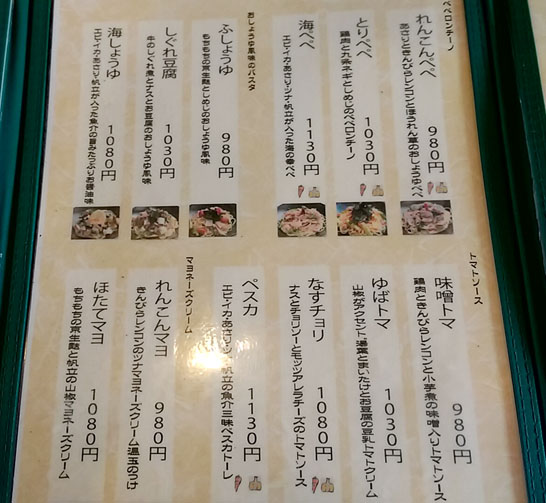 ペペロンチーノ
れんこんペペ 980円
あさりときんぴらレンコンとほうれん草のおしょうゆペペ
とりペペ 1030円
鶏肉と九条ネギとしめじのペペロンチーノ
海ペペ 1130円
エビ・イカ・あさり・ツナ・帆立が入った海の幸ペペ
おしょうゆ風味のパスタ
ふしょうゆ 980円
もちもちの京生麩としめじのおしょうゆ風味
しぐれ豆腐 1030円
牛のしぐれ煮とナスとお豆腐のおしょうゆ風味
海しょうゆ 1080円
エビ・イカ・あさり・帆立が入った魚介の旨みたっぷりお醤油味
トマトソース
味噌トマ 980円
鶏肉ときんぴらレンコンと小芋煮の味噌入りトマトソース
ゆばトマ 1030円
山椒がアクセント 湯葉とまいたけとお豆腐の豆乳トマトクリーム
なすチョリ 1080円
ナスとチョリソーとモッツアレラチーズのトマトソース
ペスカ 1130円
エビ・イカ・あさり・ツナ・帆立の魚介三昧ペスカトーレ
マヨネーズクリーム
れんこんマヨ 980円
きんぴらレンコンのツナマヨネーズクリーム 温玉のっけ
ほたてマヨ 1080円
もちもちの京生麩と帆立の山椒マヨネーズクリーム